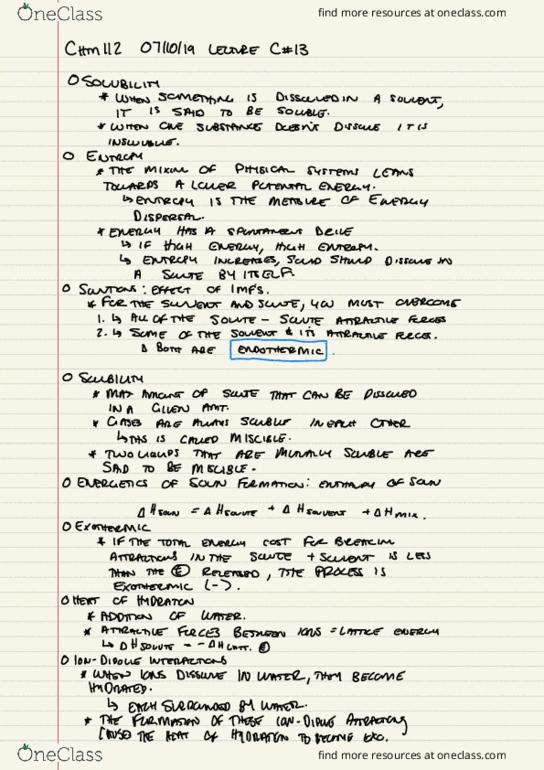 OneClass
find more resources at oneclass.com
CHM 112 07/10/19 LECTURE C#13
O SOLUBILITY
* WHEN SOMETHING IS DISSOLVED IN A SOLVENT,
IT IS SAID TO BE SOLUBLE.
* WHEN ONE SUBSTANCE DOESN'T DISSOLVE IT IS
INSOLUBLE.
O ENTROPY
* THE MIXING OF PHYSICAL SYSTEMS LEANS
TOWARDS A LOWER POTENTIAL ENERGY.
↳ ENTROPY IS THE MEASURE OF ENERGY
DISPERSAL.
* ENERGY HAS A SPONTANEOUS DRIVE
↳ IF HIGH ENERGY, HIGH ENTROPY.
↳ ENTROPY INCREASES, SOLID SHOULD DISSOLVE IN
A SOLUTE BY ITSELF.
O SOLUTIONS: EFFECT OF IMFS.
* FOR THE SOLVENT AND SOLUTE, YOU MUST OVERCOME
1. ↳ ALL OF THE SOLUTE - SOLUTE ATTRACTIVE FORCES
2. ↳ SOME OF THE SOLVENT & ITS ATTRACTIVE FORCES.
Δ BOTH ARE ENDOTHERMIC.
O SOLUBILITY
* MAX AMOUNT OF SOLUTE THAT CAN BE DISSOLVED
IN A GIVEN AMT.
* GASES ARE ALWAYS SOLUBLE IN EACH OTHER
↳ THIS IS CALLED MISCIBLE.
* TWO LIQUIDS THAT ARE MUTUALLY SOLUBLE ARE
SAID TO BE MISCIBLE.
O ENERGETICS OF SOLUN FORMATION: ENTHALPY OF SOLUN
Δ H SOLUN = Δ H SOLUTE + Δ H SOLVENT + Δ H MIX.
O EXOTHERMIC
* IF THE TOTAL ENERGY COST FOR BREAKING
ATTRACTIONS IN THE SOLUTE + SOLVENT IS LESS
THAN THE E RELEASED, THE PROCESS IS
EXOTHERMIC (-).
O HEAT OF HYDRATION
* ADDITION OF WATER.
* ATTRACTIVE FORCES BETWEEN IONS = LATTICE ENERGY
↳ Δ H SOLUTE = - Δ H LATT. E
O ION-DIPOLE INTERACTIONS
* WHEN IONS DISSOLVE IN WATER, THEY BECOME
HYDRATED.
↳ EACH SURROUNDED BY WATER.
* THE FORMATION OF THESE ION-DIPOLE ATTRACTIONS
CAUSE THE HEAT OF HYDRATION TO BECOME EXO.
OneClass
find more resources at oneclass.com